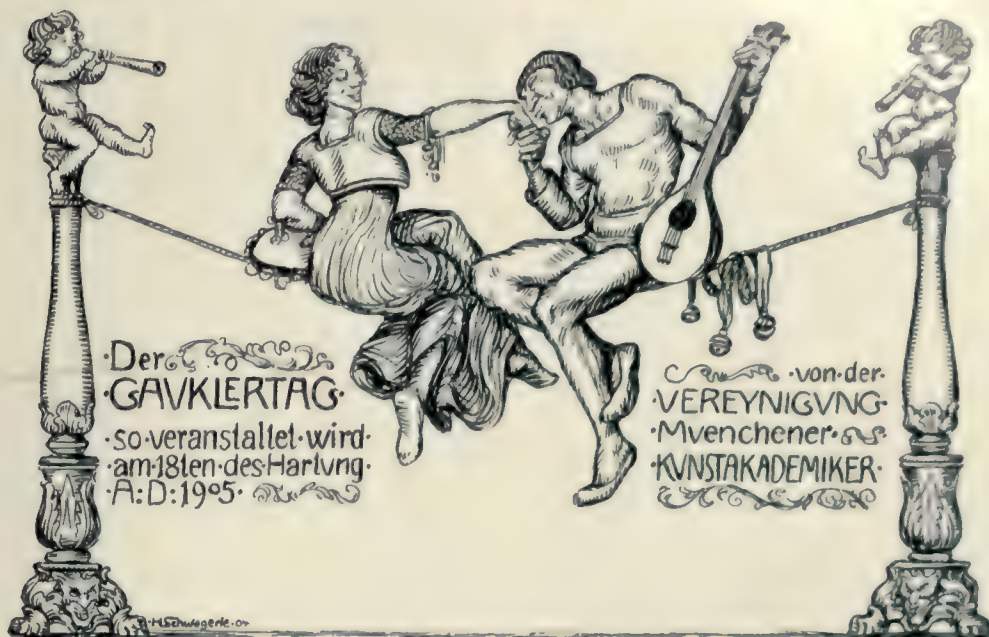 ·Der
·GAVKLERTAG·
·so·veranstaltet·wird·
·am·18ten·des·Hartvng·
·A:D:1905·
·von·der·
·VEREYNIGVNG·
·Mvenchener·
·KVNSTAKADEMIKER·
·H·Schwegerle·04·